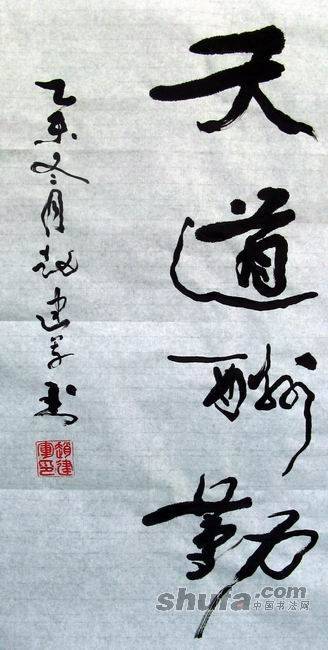 天道酬勤
乙未冬月赵建军书
shufa.com
中国书法网